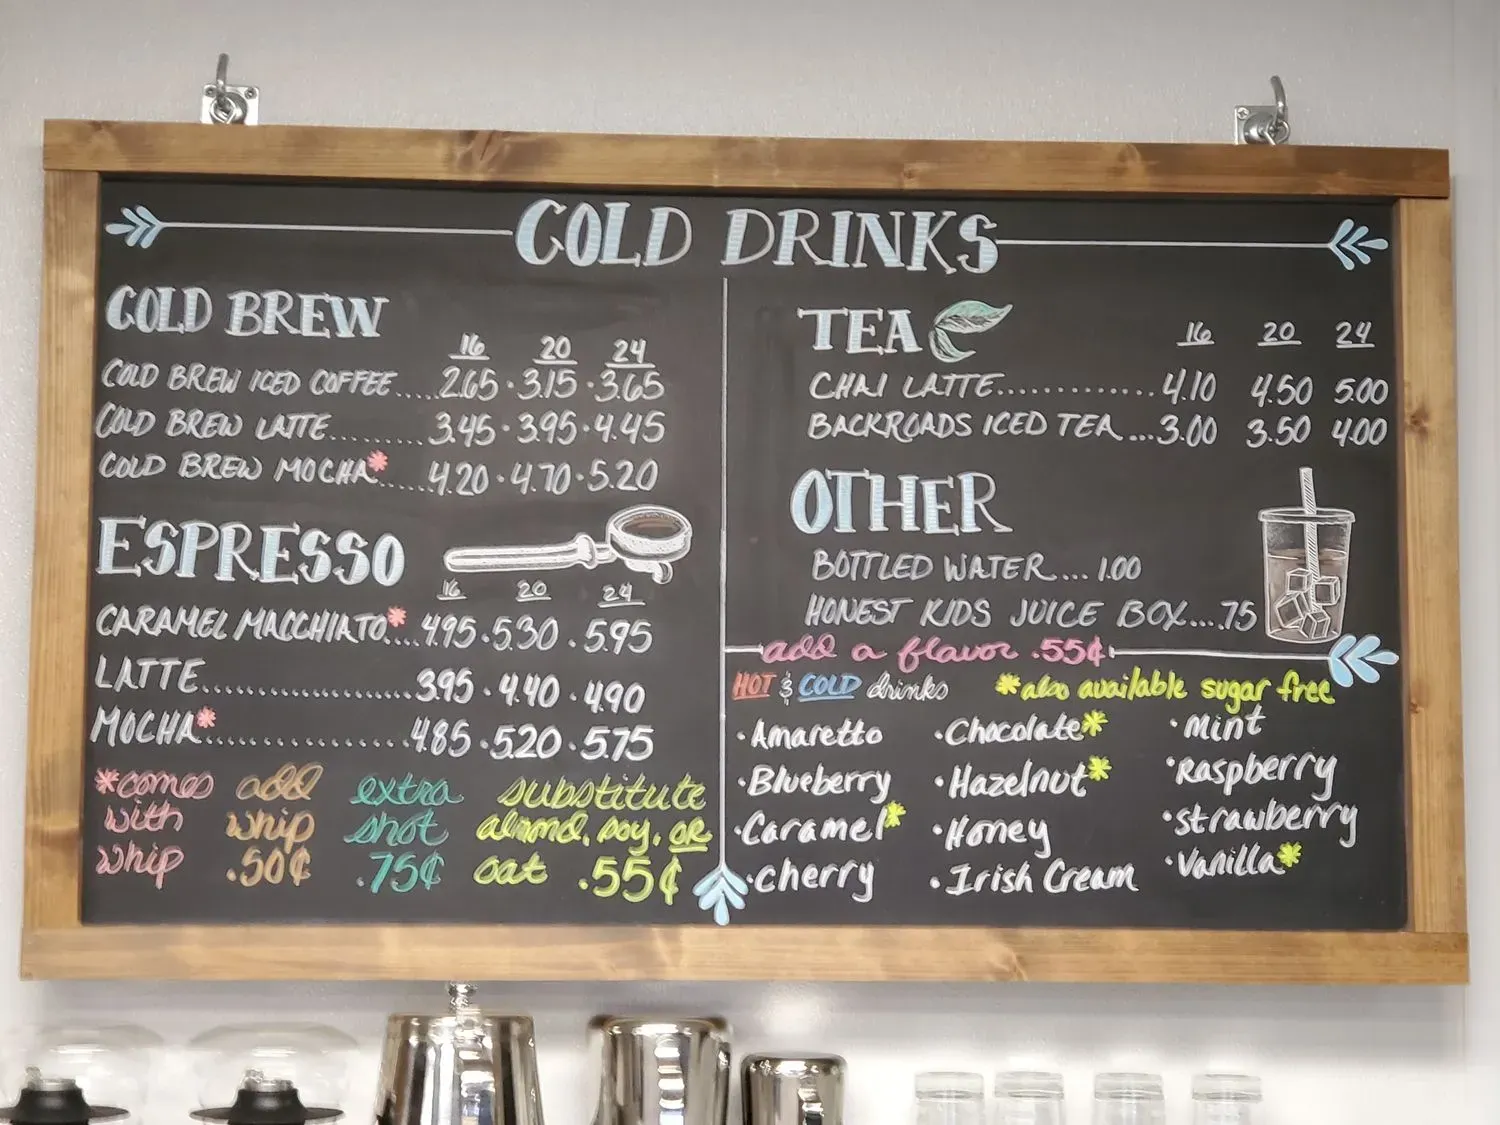 COLD DRINKS
COLD BREW
16 20 24
COLD BREW ICED COFFEE.....2.65 · 3.15 · 3.65
COLD BREW LATTE.........3.45 · 3.95 · 4.45
COLD BREW MOCHA*......4.20 · 4.70 · 5.20
ESPRESSO
16 20 24
CARAMEL MACCHIATO*....4.95 · 5.30 · 5.95
LATTE......................3.95 · 4.40 · 4.90
MOCHA*....................4.85 · 5.20 · 5.75
*comes with whip
add whip .50¢
extra shot .75¢
substitute almond, soy, OR oat .55¢
TEA
16 20 24
CHAI LATTE.............4.10 4.50 5.00
BACKROADS ICED TEA...3.00 3.50 4.00
OTHER
BOTTLED WATER.... 1.00
HONEST KIDS JUICE BOX.....75
add a flavor .55¢
HOT & COLD drinks *also available sugar free
· Amaretto
· Blueberry
· Caramel*
· cherry
· Chocolate*
· Hazelnut*
· Honey
· Irish Cream
· mint
· Raspberry
· strawberry
· Vanilla*